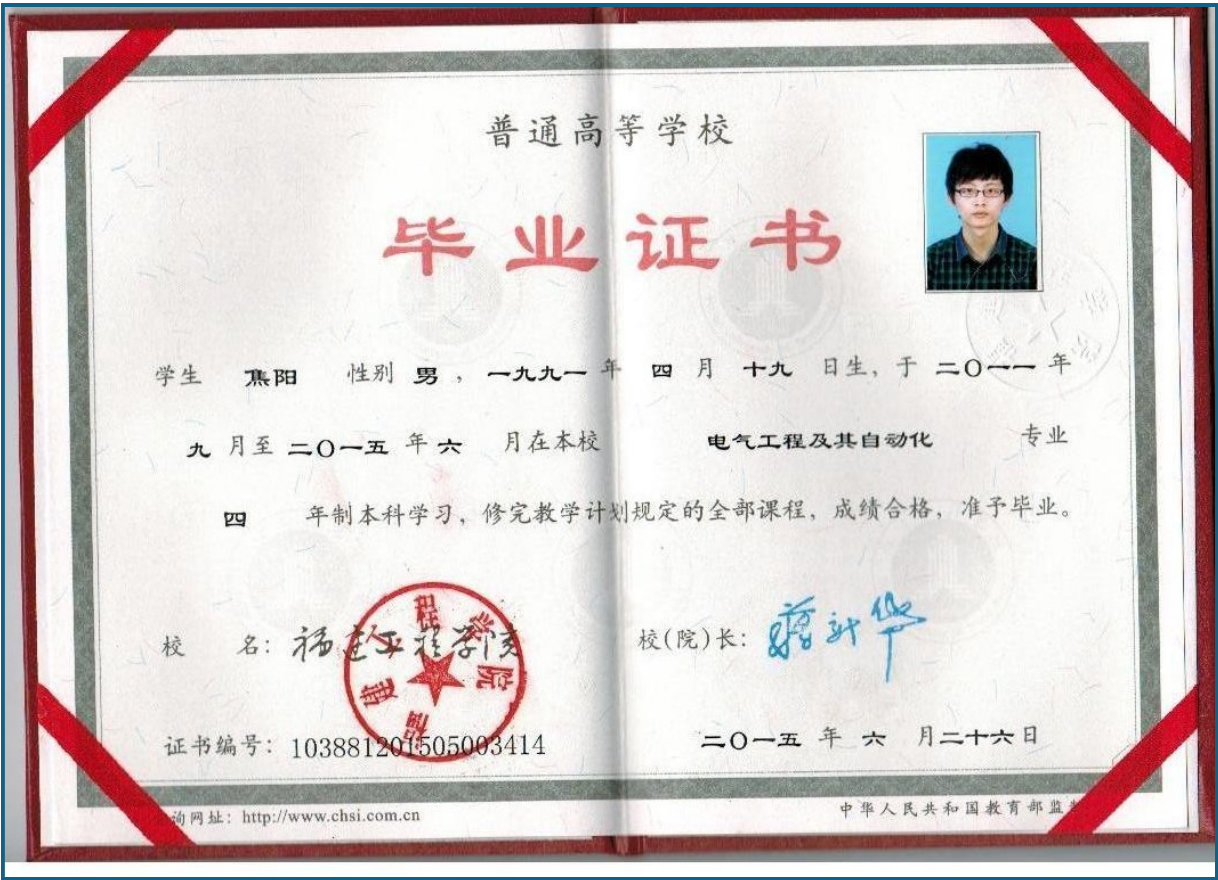 普通高等学校
毕业证书
学生 焦阳 性别 男，一九九一年 四 月 十九 日生，于 二〇一一 年
九 月至 二〇一五 年 六 月在本校 电气工程及其自动化 专业
四 年制本科学习，修完教学计划规定的全部课程，成绩合格，准予毕业。
福建工程学院
校 名：福建工程学院 校(院)长：
证书编号：103881201505003414 二〇一五 年 六 月二十六日
询网址：http://www.chsi.com.cn 中华人民共和国教育部监制